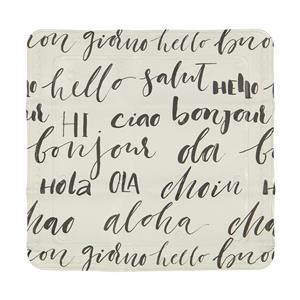 uon giorno hello buon
hello salut HELLO
HI ciao bonjour
bonjour da b
Hola OLA choin
hao aloha cha
uon giorno hello buon